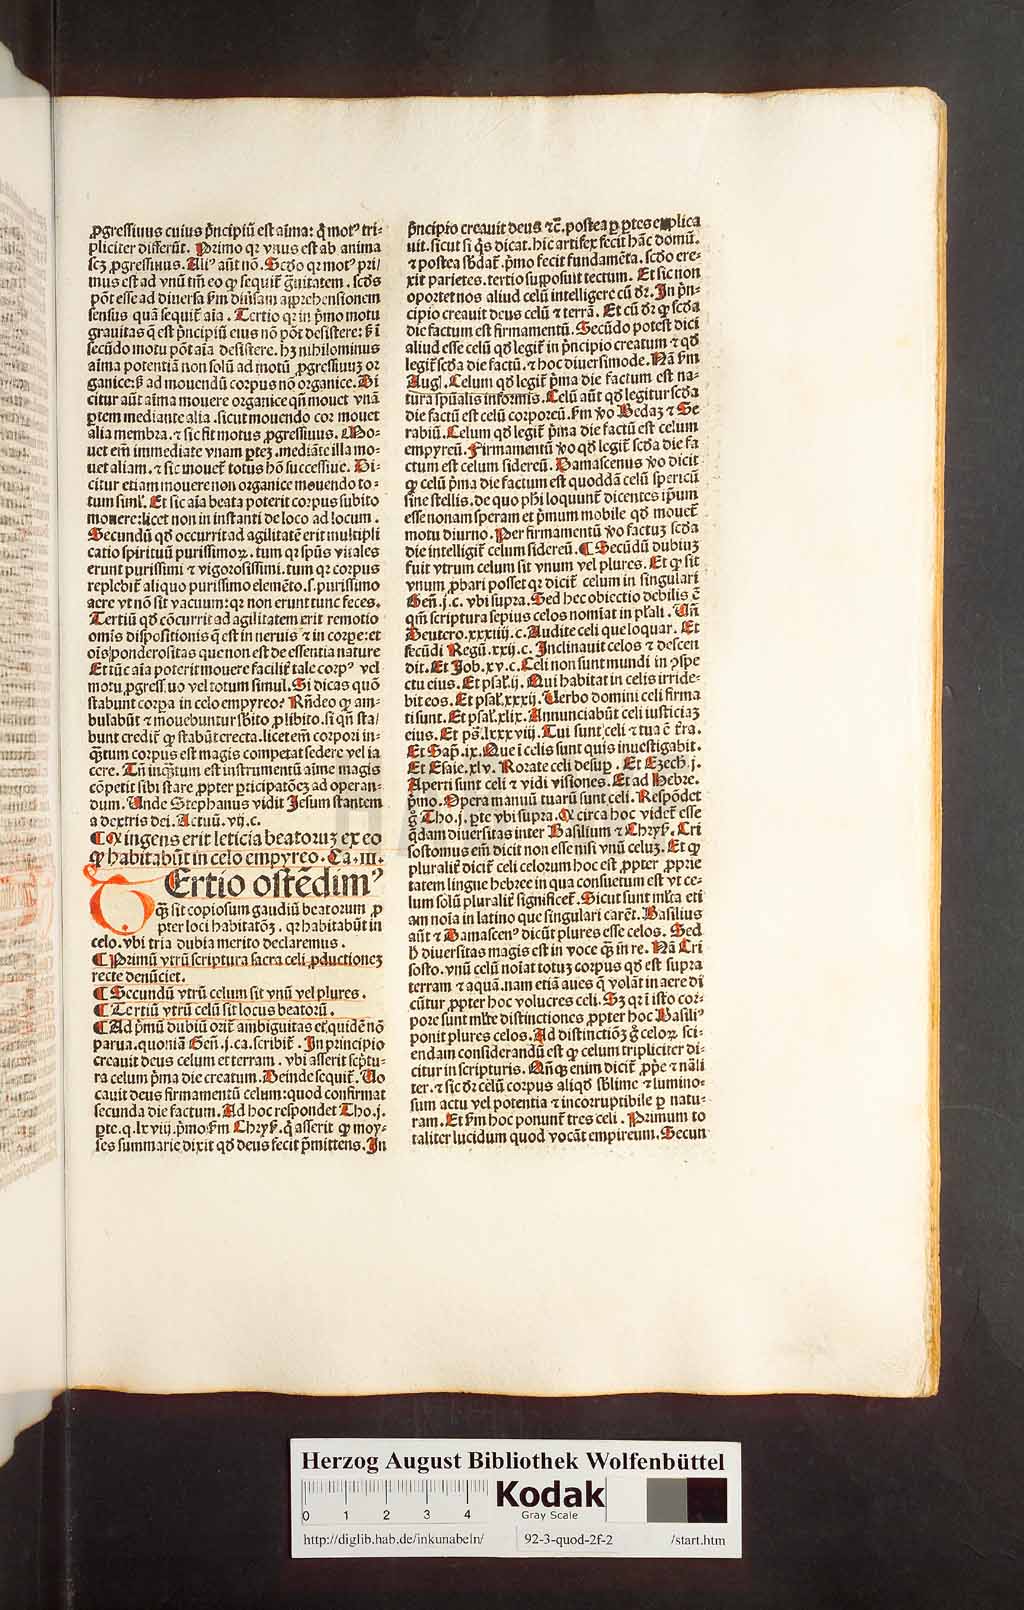 ꝓgressiuus cuius p̄ncipiū est aīma: q̄ motꝰ tri-
pliciter differūt. Primo qꝛ vnus est ab anima
scꝫ ꝓgressiuus. Aliꝰ aūt nō. Scḋo qꝛ motꝰ pri/
mus est ad vnū tm̄ eo ꝙ sequit̄ g̃uitatem. scḋs
pōt esse ad diuersa ẜm diũsam apprehensionem
sensus quā sequit̄ aīa. Tertio qꝛ in p̄mo motu
grauitas q̄ est p̄ncipiū eius nō pōt desistere: ẜ ī
secūdo motu pōt aīa desistere. hꝫ nihilominus
aīma potentiā non solū ad motū ꝓgressiuuꝫ or
ganice ẜ ad mouendū corpus nō organice. Di
citur aūt aīma mouere organice qn̄ mouet vnā
ꝑtem mediante alia. sicut mouendo cor mouet
alia membra. ⁊ sic fit motus ꝓgressiuus. Mo-
uet em̄ immediate vnam ꝑteꝫ. mediāte illa mo-
uet aliam. ⁊ sic mouet̄ totus hō successiue. Di-
citur etiam mouere non organice mouendo to-
tum simĺ. Et sic aīa beata poterit corpus subito
mouere: licet non in instanti de loco ad locum.
Secundū qḋ occurrit ad agilitatē erit multipli
catio spirituū purissimoꝝ. tum qꝛ spūs vitales
erunt purissimi ⁊ vigorosissimi. tum qꝛ corpus
replebit̄ aliquo purissimo elemēto. s. purissimo
aere vt nō sit vacuum: qꝛ non erunt tunc feces.
Tertiū qḋ cōcurrit ad agilitatem erit remotio
omīs dispositionis q̄ est in neruis ⁊ in corpe: et
oīs ponderositas que non est de essentia nature
Et tūc aīa poterit mouere facilit̄ tale corpꝰ vel
motu ꝓgressiuo vel totum simul. Si dicas quō
stabunt corpa in celo empyreo? Rn̄deo ꝙ am-
bulabūt ⁊ mouebuntur sb̄ito ꝓ libito. si qn̄ sta/
bunt credit̄ ꝙ stabūt erecta. licet em̄ corpori in-
q̄tum corpus est magis competat sedere vel ia
cere. Tn̄ inq̄tum est instrumentū aīme magis
cōpetit sibi stare ꝓpter ꝑticipatōeꝫ ad operan-
dum. Unde Stephanus vidit Jesum stantem
a dextris dei. Actuū. vij. c.
¶ Qꝙ ingens erit leticia beatoruꝫ ex eo
ꝙ habitabūt in celo empyreo. Ca. III.
TErtio ostēdimꝰ
ꝙ sit copiosum gaudiū beatorum ꝓ
pter loci habitatōeꝫ. qꝛ habitabūt in
celo. vbi tria dubia merito declaremus.
¶ Primū vtrū scriptura sacra celi ꝓductioneꝫ
recte denūciet.
¶ Secundū vtrū celum sit vnū vel plures.
¶ Tertiū vtrū celū sit locus beatorū.
¶ Ad p̄mū dubiū orit̄ ambiguitas et quidē nō
parua. quoniā Geñ. j. ca. scribit̄. In principio
creauit deus celum et terram. vbi asserit scp̄tu-
ra celum p̄ma die creatum. Deinde sequit̄. Uo
cauit deus firmamentū celum: quod confirmat
secunda die factum. Ad hoc respondet Tho. j.
ꝑte. q. lxviij. p̄mo ẜm Chryẜ. q̄ asserit ꝙ moy-
ses summarie dixit qḋ deus fecit p̄mittens. In
p̄ncipio creauit deus ⁊c̄. postea ꝑ ꝑtes explica
uit. sicut si q̄s dicat. hic artifex fecit hāc domū.
⁊ postea sb̄dat̄. p̄mo fecit fundamēta. scḋo ere-
xit parietes. tertio supposuit tectum. Et sic non
oportet nos aliud celū intelligere cū dr̄. In p̄n-
cipio creauit deus celū ⁊ terrā. Et cū dr̄ ꝙ scḋa
die factum est firmamentū. Secūdo potest dici
aliud esse celū qḋ legit̄ in p̄ncipio creatum ⁊ qḋ
legit̄ scḋa die factū. ⁊ hoc diuersimode. Nā ẜm
Augꝭ. Celum qḋ legit̄ p̄ma die factum est na-
tura spūalis informis. Celū aūt qḋ legitur scḋa
die factū est celū corporeū. ẜm ṽo Bedaꝫ ⁊ Se
rabiū. Celum qḋ legit̄ p̄ma die factū est celum
empyreū. Firmamentū ṽo qḋ legit̄ scḋa die fa
ctum est celum sidereū. Damascenus ṽo dicit
ꝙ celū p̄ma die factum est quoddā celū spericū
sine stellis. de quo ph̄i loquunt̄ dicentes ip̄um
esse nonam speram et p̄mum mobile qḋ mouet̄
motu diurno. Per firmamentū ṽo factuꝫ scḋa
die intelligit̄ celum sidereū. ¶ Secūdū dubiuꝫ
fuit vtrum celum sit vnum vel plures. Et ꝙ sit
vnum ꝓbari posset qꝛ dicit̄ celum in singulari
Geñ. j. c. vbi supra. Sed hec obiectio debilis ē
qm̄ scriptura sepius celos nomīat in pl̄ali. Uñ
Deutero. xxxiij. c. Audite celi que loquar. Et
secūdi Regū. xxij. c. Inclinauit celos ⁊ descen
dit. Et Job. xv. c. Celi non sunt mundi in ꝯspe
ctu eius. Et psaĺ. ij. Qui habitat in celis irride-
bit eos. Et psaĺ. xxxij. Uerbo domini celi firma
ti sunt. Et psaĺ. xlix. Annunciabūt celi iusticiaꝫ
eius. Et pś. lxxxviij. Tui sunt celi ⁊ tua ē t̄ra.
Et Sap̄. ix. Que ī celis sunt quis inuestigabit.
Et Esaie. xlv. Rorate celi desuꝑ. Et Ezech. j.
Aperti sunt celi ⁊ vidi visiones. Et ad Hebre.
p̄mo. Opera manuū tuarū sunt celi. Respōdet
g̊ Tho. j. ꝑte vbi supra. Qꝙ circa hoc videt̄ esse
q̄dam diuersitas inter Basilium ⁊ Chryẜ. Cri
sostomus em̄ dicit non esse nisi vnū celuꝫ. Et ꝙ
pluralit̄ dicit̄ celi celorum hoc est ꝓpter ꝓprie
tatem lingue hebree in qua consuetum est vt ce-
lum solū pluralit̄ significet̄. Sicut sunt ml̄ta eti
am noīa in latino que singulari carēt. Basilius
aūt ⁊ Damascenꝰ dicūt plures esse celos. Sed
h̄ diuersitas magis est in voce q̄ in re. Nā Cri
sosto. vnū celū noīat totuꝫ corpus qḋ est supra
terram ⁊ aquā. nam etiā aues q̄ volāt in aere di
cūtur ꝓpter hoc volucres celi. Sꝫ qꝛ ī isto cor-
pore sunt ml̄te distinctiones ꝓpter hoc Basiliꝰ
ponit plures celos. Ad distinctiōeꝫ g̊ celoꝝ sci-
endam considerandū est ꝙ celum tripliciter di-
citur in scripturis. Qn̄qꝫ enim dicit̄ ꝓpe ⁊ nāli
ter. ⁊ sic dr̄ celū corpus aliqḋ sb̄lime ⁊ lumino-
sum actu vel potentia ⁊ incorruptibile ꝑ natu-
ram. Et ẜm hoc ponunt̄ tres celi. Primum to
taliter lucidum quod vocāt empireum. Secun
Herzog August Bibliothek Wolfenbüttel
0 1 2 3 4
Kodak
Gray Scale
http://diglib.hab.de/inkunabeln/ 92-3-quod-2f-2 /start.htm